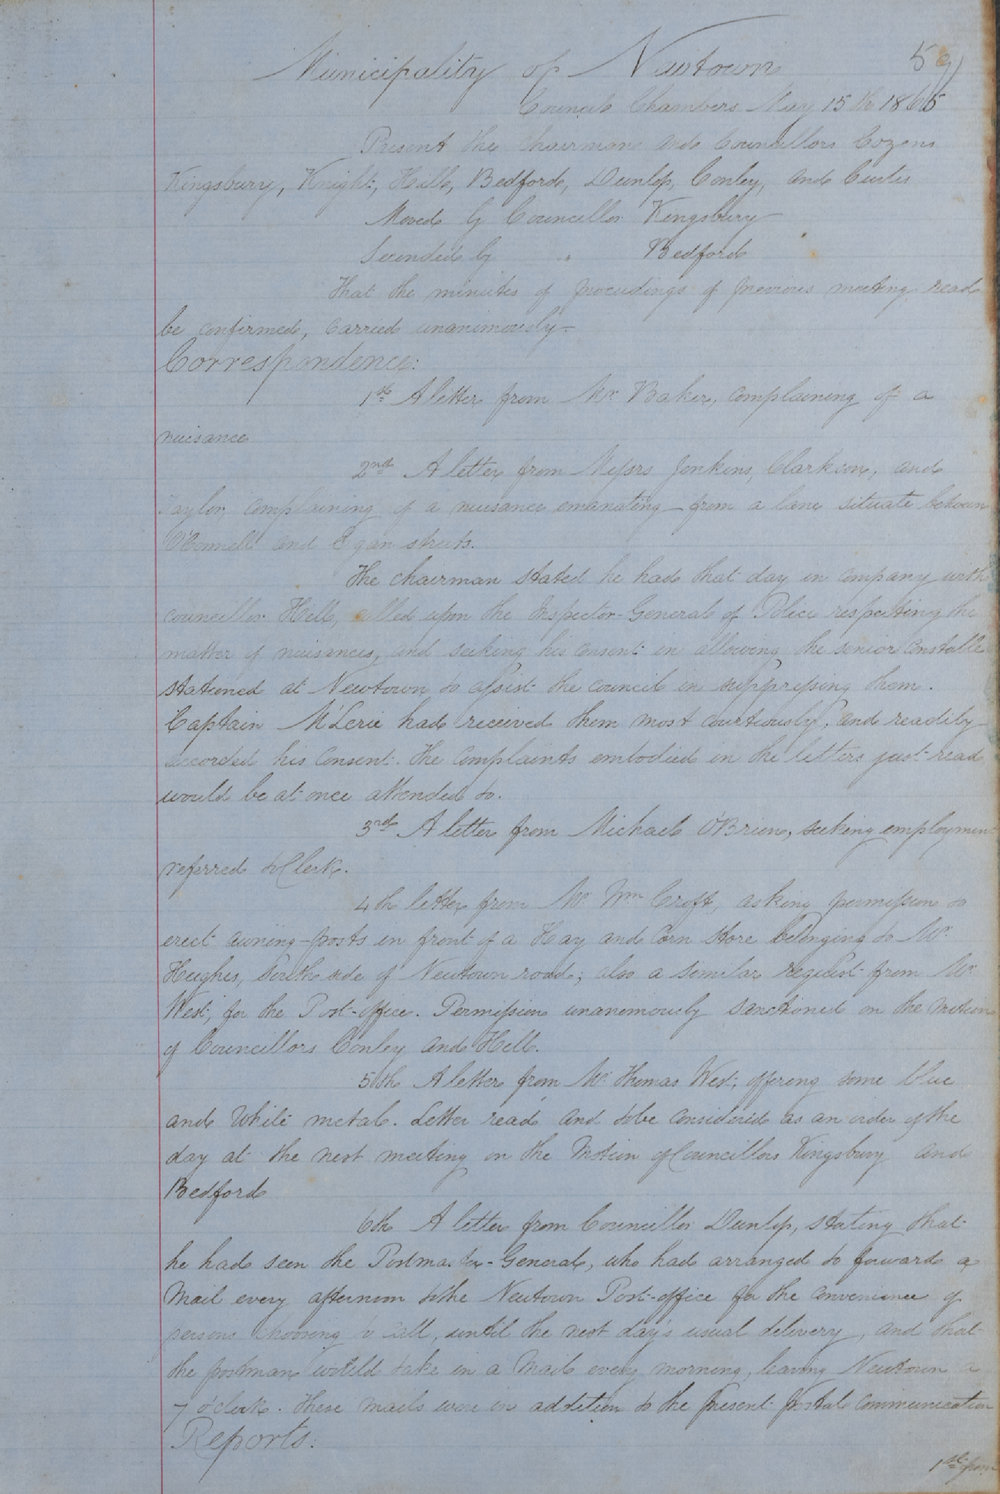 59
Municipality of Newtown
Council Chambers May 15th 1865
Present the Chairman and Councillors Cozens
Kingsbury, Knight, Hill, Bedford, Dunlop, Conley, and Curtis
Moved by Councillor Kingsbury
Seconded by " Bedford
That the minutes of proceedings of previous meeting read
be confirmed, carried unanimously—
Correspondence:
1st A letter from Mr Baker, complaining of a
nuisance
2nd A letter from Messrs Jenkins, Clarkson, and
Taylor, complaining of a nuisance emanating from a lane situate between
O'Connell and Egan streets.
The chairman stated he had that day in company with
councillor Hill, called upon the Inspector-General of Police respecting the
matter of nuisances, and seeking his consent in allowing the senior constable
stationed at Newtown to assist the council in suppressing them.
Captain M'Lerie had received them most courtiously, and readily
accorded his consent. The complaints embodied in the letters just read
would be at once attended to.
3rd A letter from Michael O'Brien, seeking employment
referred to Clerk.
4th letter from Mr Wm Croft, asking permission to
erect awning-posts in front of a Hay and Corn Store belonging to Mr
Hughes, South side of Newtown road; also a similar request from Mr
West, for the Post-office. Permission unanimously sanctioned on the motion
of Councillors Conley and Hill.
5th A letter from Mr Thomas West, offering some blue
and white metal. Letter read and to be considered as an order of the
day at the next meeting on the Motion of Councillors Kingsbury and
Bedford
6th A letter from Councillor Dunlop, stating that
he had seen the Postmaster-General, who had arranged to forward a
Mail every afternoon to the Newtown Post-office for the convenience of
persons choosing to call, until the next day's usual delivery, and that
the postman would take in a Mail every morning, leaving Newtown a
7 o'clock. These mails were in addition to the present postal communication
Reports:
1st from